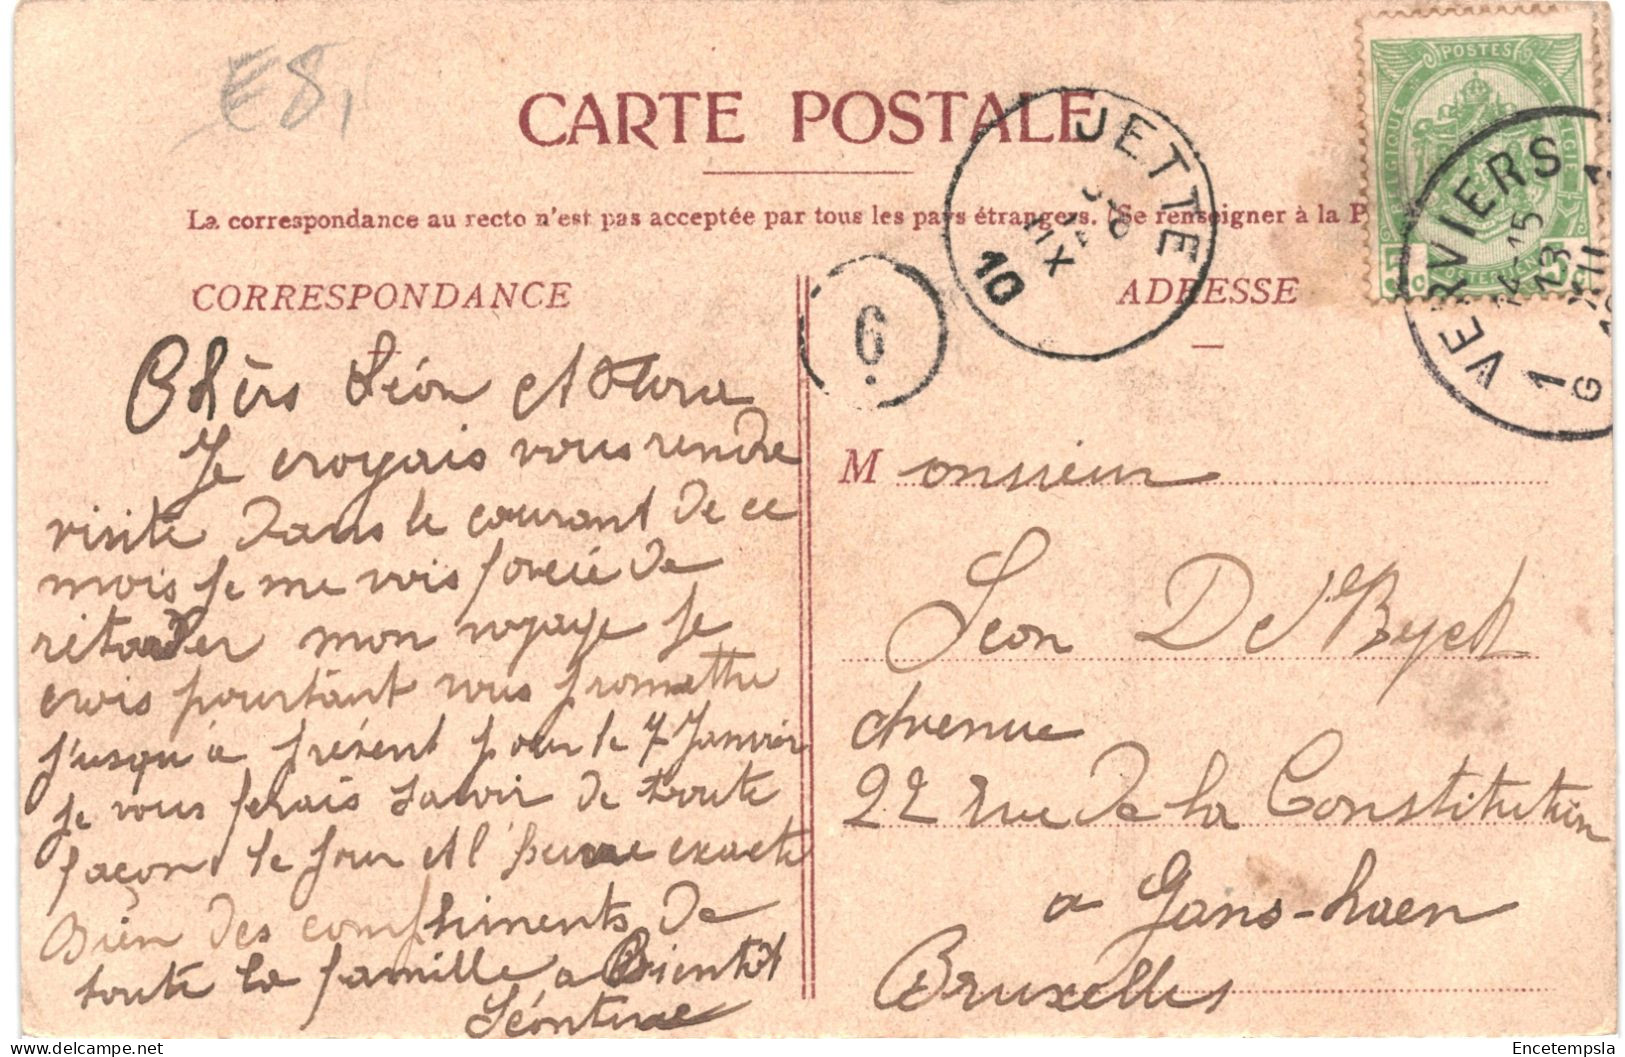 E8,
CARTE POSTALE
La correspondance au recto n'est pas acceptée par tous les pays étrangers. (Se renseigner à la P
CORRESPONDANCE
Chèrs Léon et Flora
Je croyais vous rendre
visite dans le courant de ce
mois je me vois forcée de
retarder mon voyage je
crois pourtant vous promettre
jusqu'à présent pour le 7 Janvier
je vous ferais savoir de toute
façon le jour et l'heure exacte
Bien des compliments de
toute la famille a Bientôt
Léontine
6
JETTE
XII
10
ADRESSE
POSTES
BELGIQUE
POSTERIJEN
5c 5c
VERVIERS 1
14-15
13
XII
G
Monsieur
Leon De
Avenue
22 rue de la Constitution
a Gans-haen
Bruxelles
Encetempsla